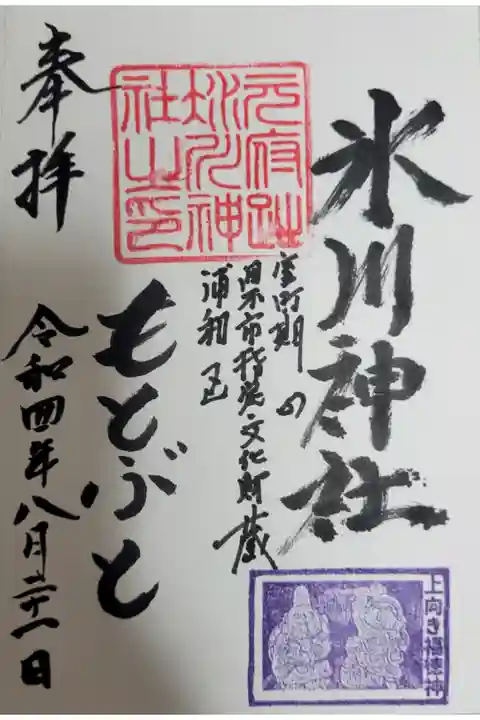 氷川神社
室町期の
市指定文化財蔵
浦和区
元府趾
氷川神
社之印
もとぶと
奉拝
令和四年八月二十一日
上向き福徳神